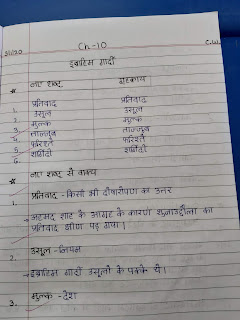 Ch-10
C.W.
इब्राहिम गार्दी
* नए शब्द श्रुतकाय
1. प्रतिवाद प्रतिवाद
2. उसूल उसूल
3. मुल्क मुल्क
4. ताज्जुब ताज्जुब
5. फरिश्ते फरिश्ते
6. शहीदों शहीदों
* नए शब्द से वाक्य
1. प्रतिवाद - किसी भी दोषारोपण का उत्तर
→ अहमद शाह के आग्रह के कारण शुजाउद्दौला का
प्रतिवाद क्षीण पड़ गया।
2. उसूल - नियम
→ इब्राहिम गार्दी उसूलों के पक्के थे।
3. मुल्क - देश